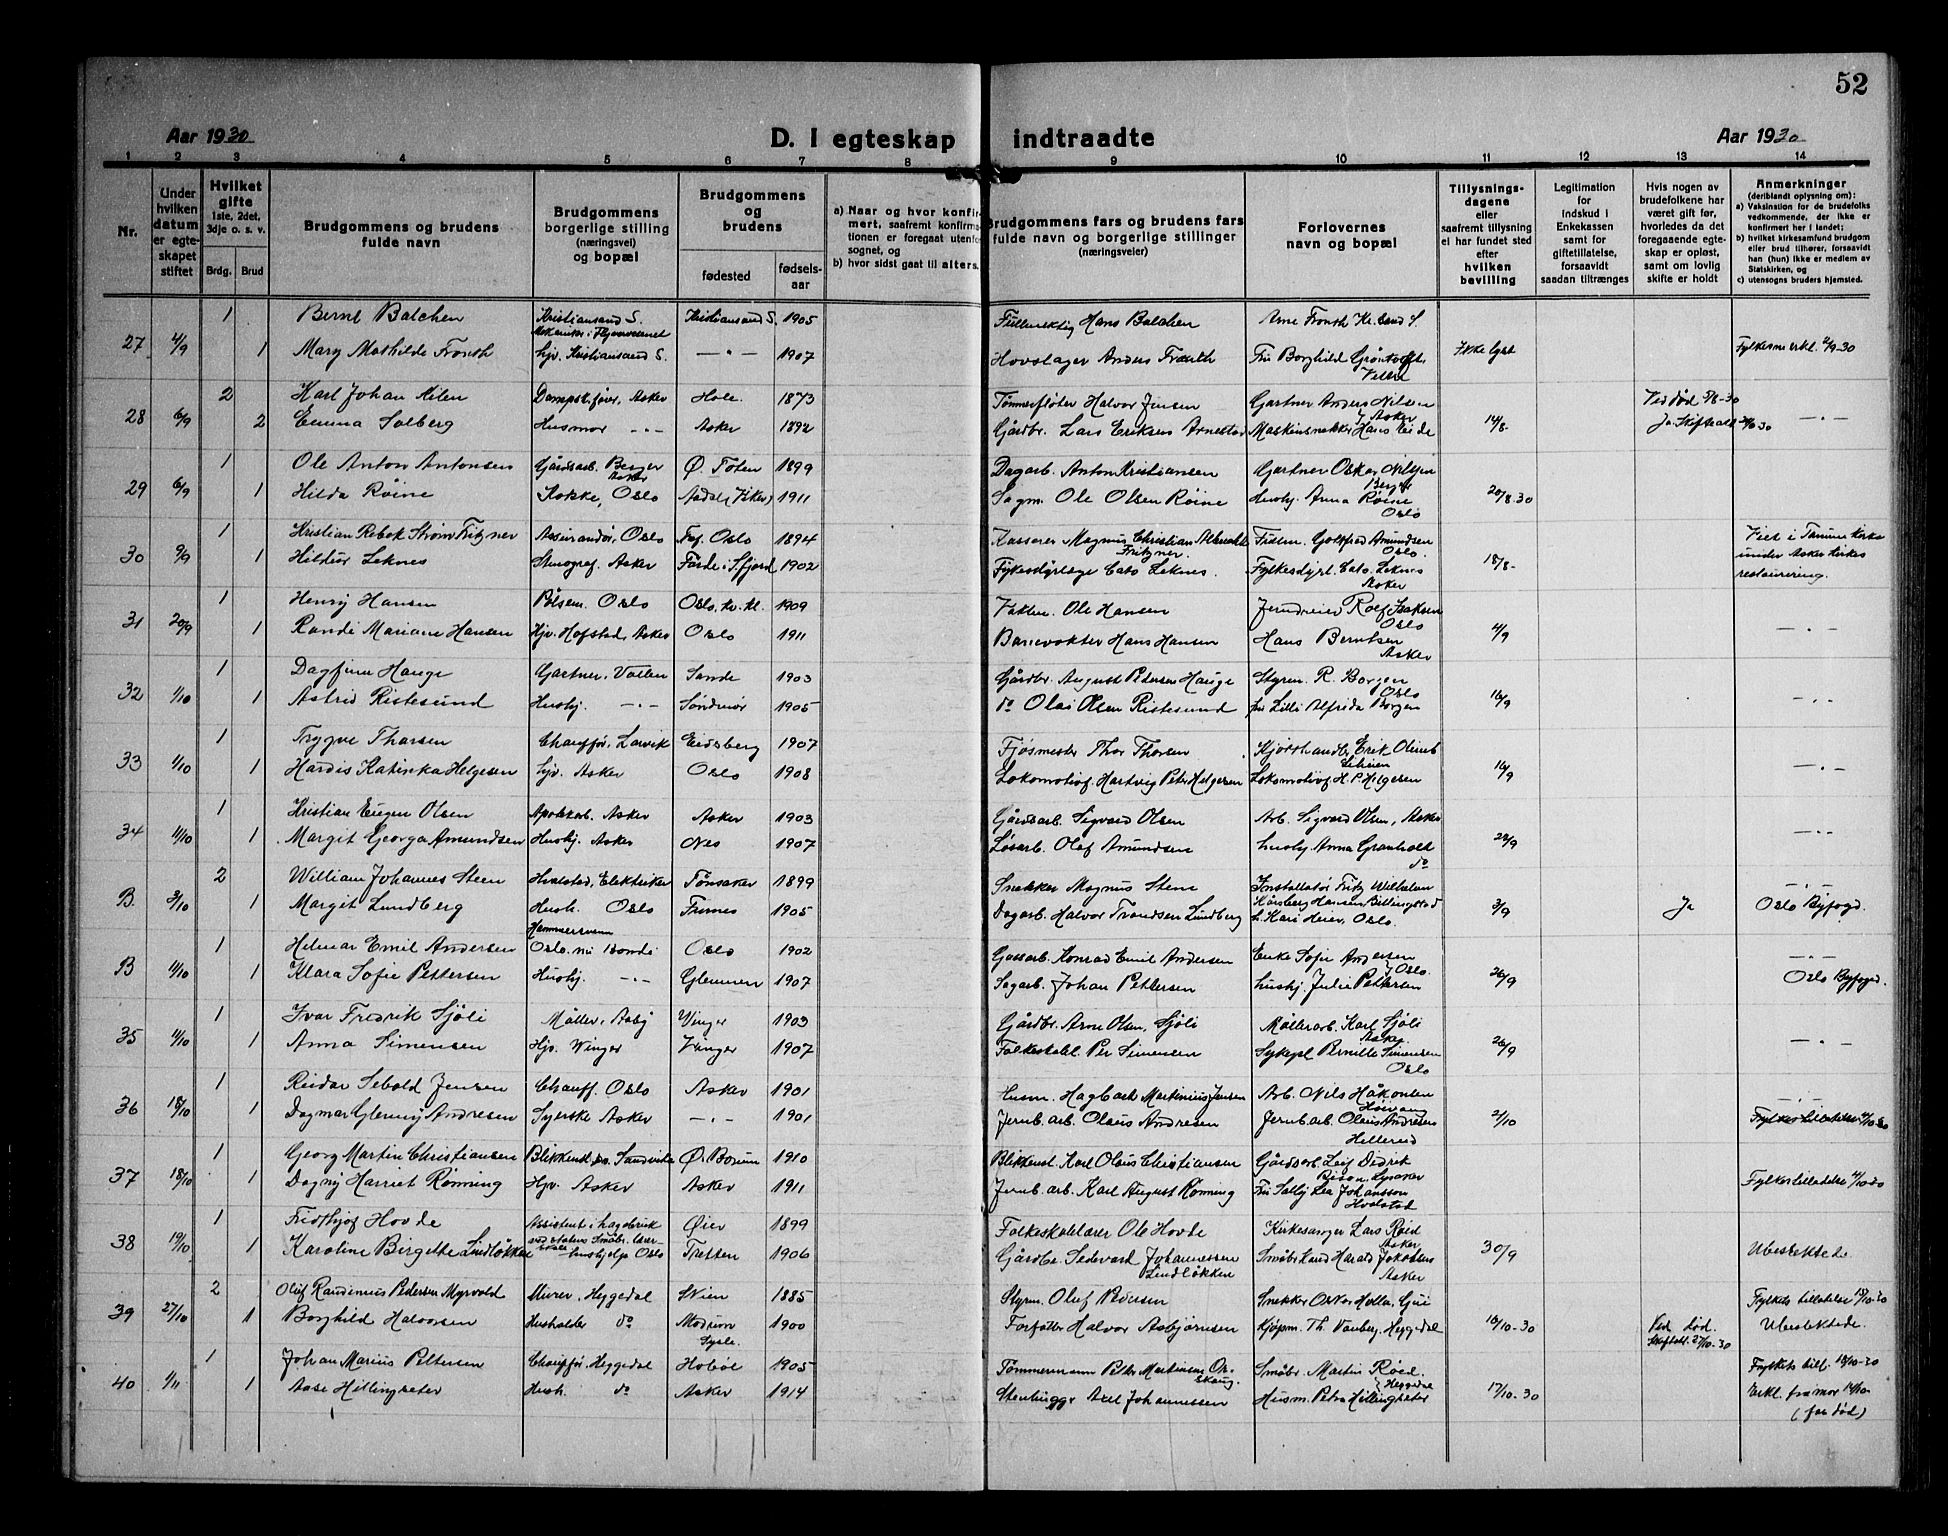 52
Aar 1930
D. I egteskap indtraadte
Aar 1930
1 2 3 4 5 6 7 8 9 10 11 12 13 14
Nr.
Under hvilken datum er egteskapet stiftet
Hvilket gifte
1ste, 2det, 3dje o. s. v.
Brdg. Brud
Brudgommens og brudens
fulde navn
Brudgommens
borgerlige stilling
(næringsvei)
og bopæl
Brudgommens
og
brudens
fødested
fødselsaar
a) Naar og hvor konfirmert, saafremt konfirmationen er foregaat utenfor sognet, og
b) hvor sidst gaat til alters.
Brudgommens fars og brudens fars
fulde navn og borgerlige stillinger
(næringsveier)
Forlovernes
navn og bopæl
Tillysningsdagene
eller
saafremt tillysning
ei har fundet sted
efter
hvilken
bevilling
Legitimation
for
indskud i
Enkekassen
samt for
giftetillatelse,
forsaavidt
saadan tiltrænges
Hvis nogen av
brudefolkene har
været gift før,
hvorledes da det
foregaaende egteskap er opløst,
samt om lovlig
skifte er holdt
Anmerkninger
(deriblandt oplysning om):
a) Vaksination for de brudefolks
vedkommende, der ikke er
konfirmert her i landet;
b) hvilket kirkesamfund brudgom
eller brud tilhører, forsaavidt
han (hun) ikke er medlem av
Statskirken, og
c) utensogns bruders hjemsted.
1 Bernt Balchen Kristiansand S. Kristiansand S. 1905 Fuldmektig Hans Balchen Arne Fronth Kr.sand S.
Mekaniker i Flyvevesenet
27 4/9 1 Mary Mathilde Fronth Hjv. Kristiansand S. — " — 1907 Hovslager Anders Fronth Fru Borghild Grøntoft, Ikke lyst Fylkesm. erkl. 2/9-30
2 Karl Johan Milen Dampsk.fører, Asker Hole 1873 Tømmerfløter Halvor Jensen Gartner Anders Nilsen Ved død
Asker
28 6/9 2 Emma Solberg Husmor — " — Asker 1892 Gårdbr. Lars Eriksen Arnestad Maskinsnekker Hans Eide 14/8. — " —
1 Ole Anton Antonsen Gårdsarb. Berger Ø. Toten 1899 Dagarb. Anton Kristiansen Gartner Oskar Nilsen
Asker Berger
29 6/9 1 Hilda Røine Kokke, Oslo Aadal (Viker) 1911 Sagm. Ole Olsen Røine Hushj. Anna Røine 20/8.30
Oslo
1 Kristian Rebok Strøm Fritzner Assurandør, Oslo Fag. Oslo 1894 Kasserer Magnus Christian Albrecht Fullm. Gottfred Amundsen Viet i Tanum kirke
Fritzner. Oslo.
30 9/9 1 Hildur Leknes Stenograf. Asker Førde i Sfjord 1902 Fylkesdyrlæge Cato Leknes. Fylkesdyrl. Cato Leknes 18/8- under Asker kirkes
Asker restaurering.
1 Henry Hansen Pølsem. Oslo Oslo, 1909 Vaktm. Ole Hansen Rolf Isaksen
Oslo
31 20/9 1 Randi Mariane Hansen Hjv. Hofstad, Asker Oslo 1911 Banevokter Hans Hansen Hans Berntsen 4/9 — " —
Asker
1 Dagfinn Hauge Gartner, Vollen Sande 1903 Gårdbr. August Petersen Hauge Styrm. R. Borgen
Oslo
32 1/10 1 Astrid Ristesund Hushj. — " — Søndmør 1905 do Olai Olsen Ristesund fru Lilli Alfrida Borgen 16/9 " "
1 Trygve Thorsen Chauffør, Larvik Eidsberg 1907 Fjøsmester Thor Thorsen
33 1/10 1 Hardis Katinka Helgesen Hjv. Asker Oslo 1908 Lokomotivf. Hartvig Peter Helgesen Lokomotivf. H. P. Helgesen 16/9 — " —
1 Kristian Eugen Olsen Apotekarb. Asker Asker 1903 Gårdsarb. Sigvard Olsen Arb. Sigvard Olsen, Asker
34 11/10 1 Margit Georga Amundsen Hushj. Asker Nes 1907 Løsarb. Olaf Amundsen Hushj. Anna Granhold 24/9 — " —
do
2 William Johannes Steen Hvalstad, Elektriker Tønsaker 1899 Snekker Magnus Steen Installatør Fritz Wilhelm — " —
B. 3/10 1 Margit Lundberg Hush. Oslo Furnes 1905 Dagarb. Halvor Trondsen Lundberg Karsberg Hansen Billingstad 3/9 Ja Oslo Byfogd.
Kari Heier, Oslo.
Hammersvenn
1 Helmar Emil Andersen Oslo. nu Bondi Oslo 1902 Gassarb. Konrad Emil Andersen Enke Sofie Andersen — " —
Oslo.
B 11/10 1 Klara Sofie Pettersen Hushj. — " — Glemmen 1907 Sagarb. Johan Pettersen Hushj. Julie Pettersen 26/9 Oslo Byfogd.
1 Ivar Fredrik Sjøli Møller, Aaby Vinger 1903 Gårdbr. Arne Olsen, Sjøli Møllerarb. Karl Sjøli
Asker
35 11/10 1 Anna Simensen Hjv. Winger Vinger 1907 Folkeskol. Per Simensen Sykepl. Pernille Simensen 26/9 — " —
Oslo
1 Reidar Sebald Jensen Chauff. Oslo Asker 1901 Husm. Hagbart Martinius Jensen Arb. Nils Håkonsen — " —
36 18/10 1 Dagmar Glenny Andresen Syerske Asker — " — 1901 Jernb. arb. Olaus Andresen Jernb. arb. Olaus Andresen 2/10
Hellerud
1 Georg Martin Christiansen Blikkensl. Sandvika Ø. Bærum 1910 Blikkensl. Karl Olaus Christiansen Gårdsarb. Leif Didrik
37 18/10 1 Dagny Harriet Rønning Hjv. Asker Asker 1911 Jernb. arb. Karl August Rønning Fru Sally Lea Johansson Fylkestilladelse 4/10-30
Hvalstad
1 Fridthjof Hovde Assistent i hagebruk Øier 1899 Folkeskolelærer Ole Hovde Kirkesanger Lars Røed
ved statens Småbr. lærer- Asker
38 19/10 1 Karoline Birgitte Lindløkken skole. hushjelp Oslo Tretten 1906 Gårdbr. Sedevard Johannessen Småbr. Land Harald Jakobsen 30/9 Ubeslektede
Lindløkken Asker
2 Oluf Randinius Pedersen Myrvold Murer, Heggedal Skien 1885 Styrm. Oluf Pedersen Snekker Oskar Holla, Gui Fylkets tillatelse 18/10-30
39 27/10 1 Borghild Halvorsen Husholder do Modum 1900 Forfatter Halvor Asbjørnsen Kjøpm. Th. Vauberg, Heggedal 18/10-30 Ved død. Ubeslektede.
Sysle. Skifteatt. 27/10.30
1 Johan Marius Pettersen Chauffør, Heggedal Hobøl 1905 Tømmermann Petter Martinsen Or- Småbr. Martin Røed Fylkets till. 18/10-30
skaug. Heggedal
40 1/11 1 Aase Hillingseter Hush. do Asker 1914 Stenhugger Axel Johannessen Husm. Petra Hillingseter 17/10-30 Erkl. fra mor 14/10-
(far død)